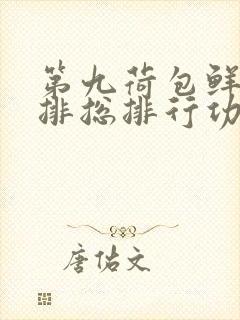 第九荷包鲜
排总排行功
唐佑文